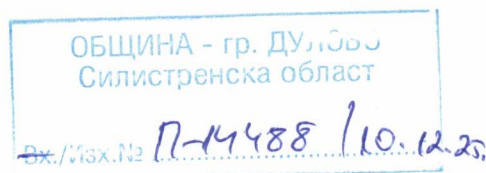 ОБЩИНА - гр. ДУЛОВО
Силистренска област
Вх./Изх.№ П-14488 / 10.12.25.